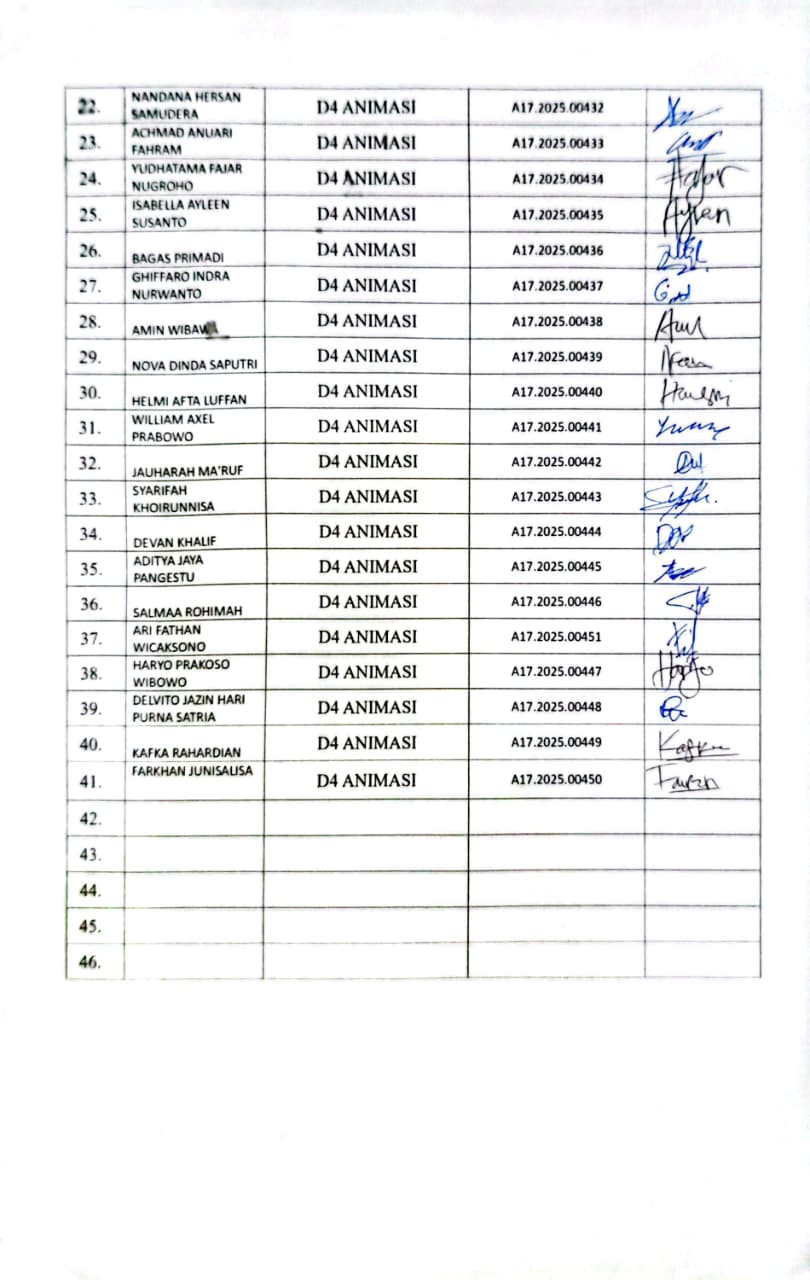 22. NANDANA HERSAN SAMUDERA D4 ANIMASI A17.2025.00432
23. ACHMAD ANUARI FAHRAM D4 ANIMASI A17.2025.00433
24. YUDHATAMA FAJAR NUGROHO D4 ANIMASI A17.2025.00434 Fajar
25. ISABELLA AYLEEN SUSANTO D4 ANIMASI A17.2025.00435
26. BAGAS PRIMADI D4 ANIMASI A17.2025.00436
27. GHIFFARO INDRA NURWANTO D4 ANIMASI A17.2025.00437
28. AMIN D4 ANIMASI A17.2025.00438
29. NOVA DINDA SAPUTRI D4 ANIMASI A17.2025.00439
30. HELMI AFTA LUFFAN D4 ANIMASI A17.2025.00440
31. WILLIAM AXEL PRABOWO D4 ANIMASI A17.2025.00441
32. JAUHARAH MA'RUF D4 ANIMASI A17.2025.00442
33. SYARIFAH KHOIRUNNISA D4 ANIMASI A17.2025.00443
34. DEVAN KHALIF D4 ANIMASI A17.2025.00444
35. ADITYA JAYA PANGESTU D4 ANIMASI A17.2025.00445
36. SALMAA ROHIMAH D4 ANIMASI A17.2025.00446
37. ARI FATHAN WICAKSONO D4 ANIMASI A17.2025.00451
38. HARYO PRAKOSO WIBOWO D4 ANIMASI A17.2025.00447 Haryo
39. DELVITO JAZIN HARI PURNA SATRIA D4 ANIMASI A17.2025.00448
40. KAFKA RAHARDIAN D4 ANIMASI A17.2025.00449 Kafka
41. FARKHAN JUNISALISA D4 ANIMASI A17.2025.00450
42.
43.
44.
45.
46.